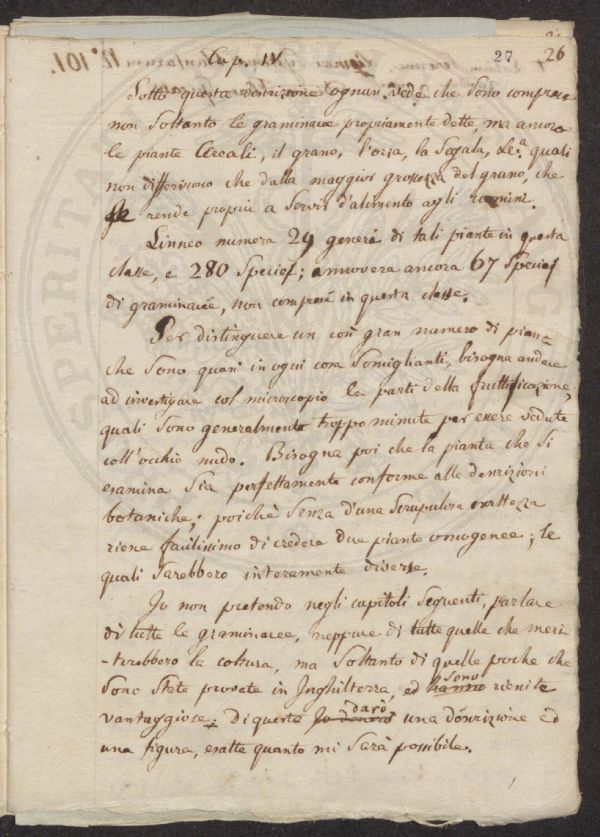 27 26
N.º 101.
Cap. IV.
Sotto questa descrizione ognun vede che sono comprese
non soltanto le graminacee propriamente dette, ma ancora
le piante Cereali, il grano, l'orzo, la Segala, &c.ª quali
non differiscono che dalla maggior grossezza del grano, che
le rende proprie a servir d'alimento agli uomini.
Linneo numera 29 generi di tali piante in questa
classe, e 280 Species; annovera ancora 67 Species
di graminacee, non comprese in questa classe.
Per distinguere un così gran numero di pian=
che sono quasi in ogni cosa somiglianti, bisogna andare
ad investigare col microscopio le parti della fruttificazione,
quali sono generalmente troppo minute per essere vedute
coll'occhio nudo. Bisogna poi che la pianta che si
esamina sia perfettamente conforme alle descrizioni
botaniche, poichè senza d'una scrupulosa esattezza
riesce facilissimo di credere due piante omogenee, le
quali sarebbero interamente diverse.
Io non pretendo negli capitoli seguenti, parlare
di tutte le graminacee, neppure di tutte quelle che meri
-terebbero la coltura, ma soltanto di quelle poche che
sono state provate in Inghilterra, ed hanno sono riescite
vantaggiose. Di queste Io darò una descrizione ed
una figura, esatte quanto mi sarà possibile.